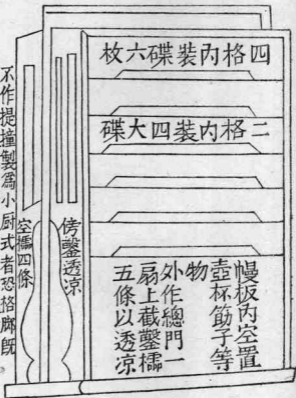 四格內裝碟六枚
二格内裝四大碟
幔板內空置
壺杯筯子等
物
外作總門一
扇上截鑿檽
五條以透凉
傍鑿透凉
空檽四條
不作提撞製爲小厨式者恐格廊既